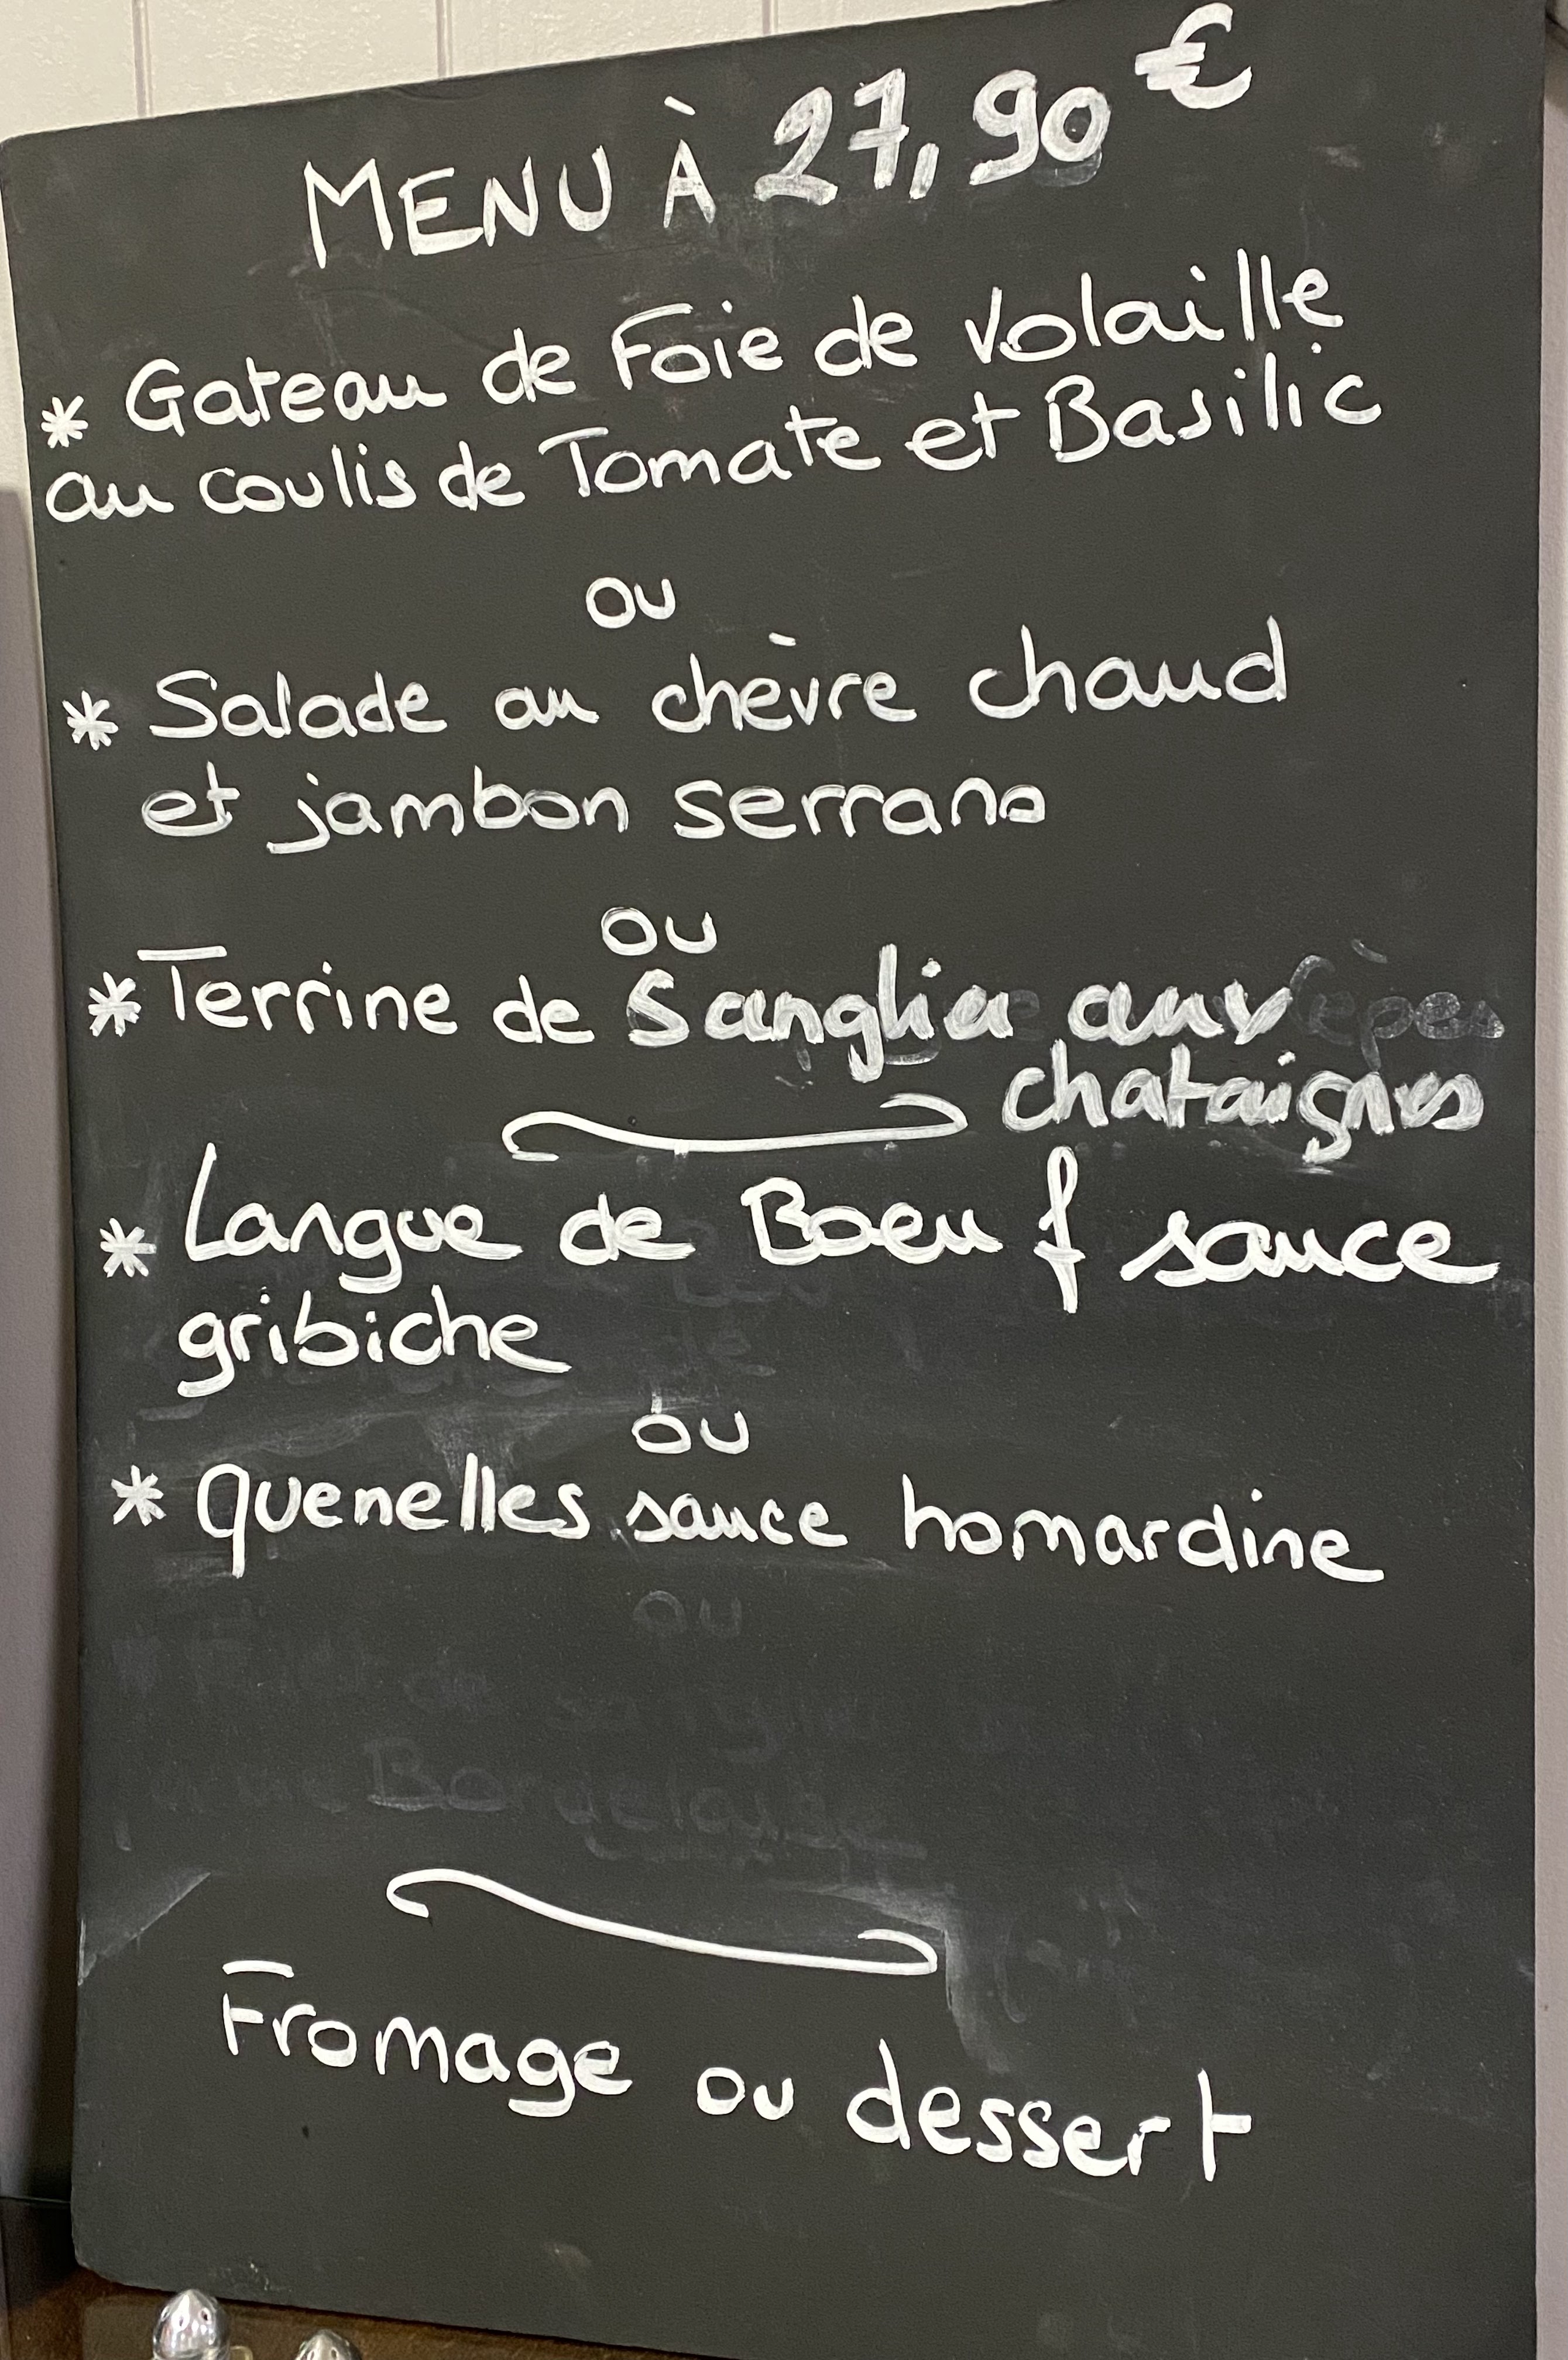 MENU À 27,90 €
* Gateau de Foie de Volaille
au coulis de Tomate et Basilic
ou
* Salade au chèvre chaud
et jambon serrano
ou
* Terrine de Sanglier aux cèpes
chataignes
* Langue de Boeuf sauce
gribiche
ou
* Quenelles sauce homardine
ou
Bordelaise
Fromage ou dessert